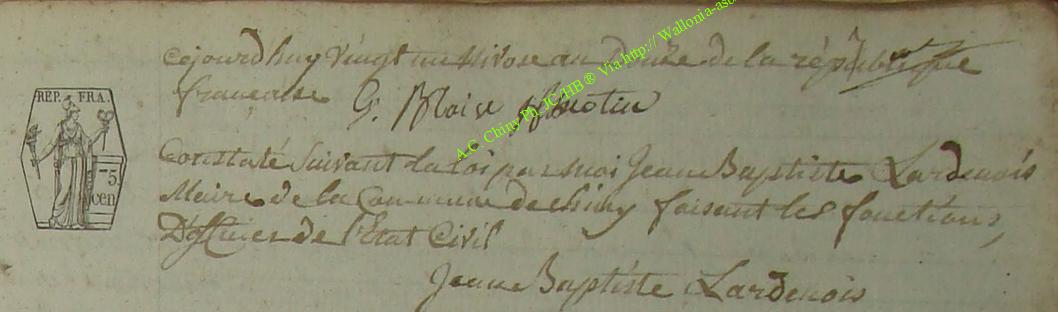 cejourdhuy vingt un nivose an douze de la république
française G. Bloise
Constaté Suivant la loi par moi Jean Baptiste Lardenois
Maire de la Commune de chiny faisant les fonctions,
D'officier de l'Etat Civil
Jean Baptiste Lardenois
REP. FRA.
75
cen
A.C. Chiny Ph. JC/HB® Via http://Wallonia-asb